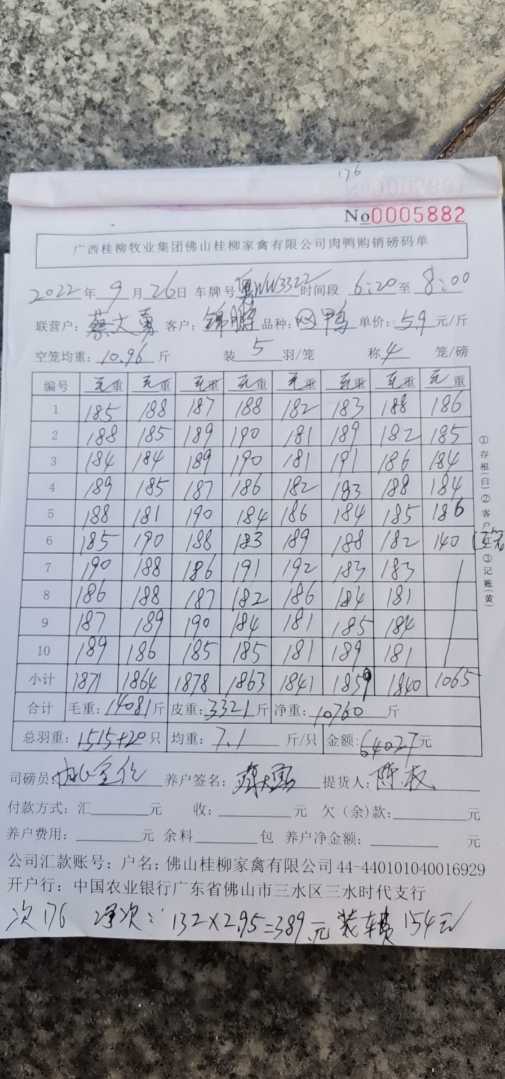 176
No0005882
广西桂柳牧业集团佛山桂柳家禽有限公司肉鸭购销磅码单
2022年 9 月 26日 车牌号 粤WW3322 时间段 6:20 至 8:00
联营户: 蔡大勇 客户: 锦鹏 品种: 鸭 单价: 5.9 元/斤
空笼均重: 10.96 斤 装 5 羽/笼 称 4 笼/磅
编号 毛重 毛重 毛重 毛重 毛重 毛重 毛重 毛重
1 185 188 187 188 182 183 188 186
2 188 185 189 190 181 189 182 185
3 184 184 189 190 181 191 186 184
4 189 185 187 186 182 183 188 184
5 188 181 190 184 186 184 185 186
6 185 190 188 183 189 188 182 140
7 190 188 186 191 192 183 183
8 186 188 187 182 186 184 181
9 187 189 190 184 181 185 184
10 189 186 185 185 181 189 181
小计 1871 1864 1878 1863 1841 1859 1840 1065
合计 毛重: 14081 斤 皮重: 3321 斤 净重: 10760 斤
总羽重: 1515+20 只 均重: 7.1 斤/只 金额: 64027 元
司磅员: 养户签名: 蔡大勇 提货人: 陈
付款方式: 汇 元 收: 元 欠(余)款: 元
养户费用: 元 余料 包 养户净金额: 元
公司汇款账号: 户名: 佛山桂柳家禽有限公司 44-440101040016929
开户行: 中国农业银行广东省佛山市三水区三水时代支行
次176 净次: 132×2.95=389元 装车费 154元
①存根(白)②客户 ③记账(黄)